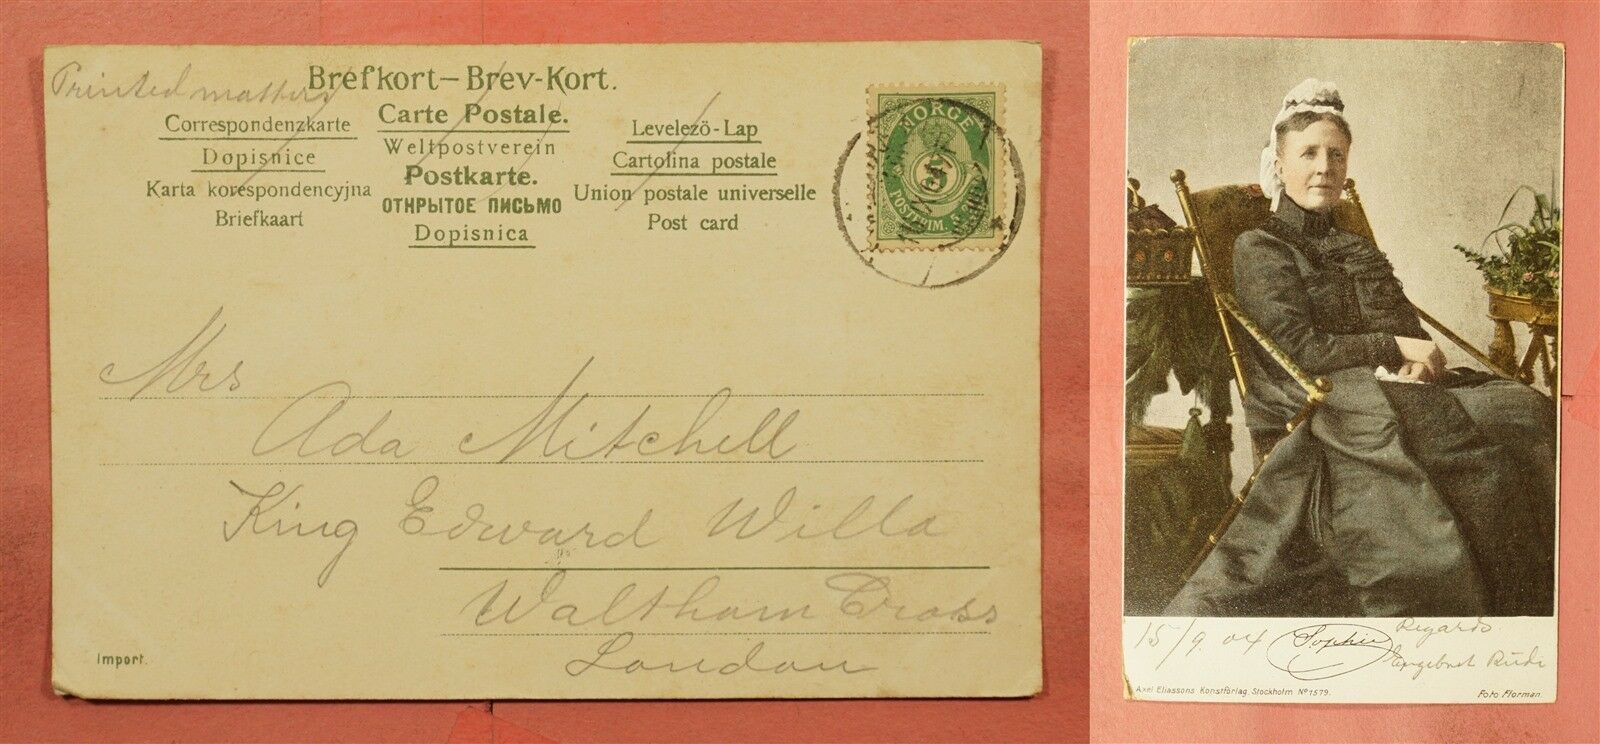 Printed matters
Brefkort – Brev-Kort.
Carte Postale.
Correspondenzkarte
Levelezö - Lap
Weltpostverein
Dopisnice
Cartolina postale
Postkarte.
Karta korespondencyjna
Union postale universelle
ОТКРЫТОЕ ПИСЬМО
Briefkaart
Post card
Dopisnica
NORGE
5
POSTFRIM. 5
Mrs
Ada Mitchell
King Edward Willa
Waltham Cross
London
Import.
15/9. 04 Sophie Regards
Axel Eliassons Konstförlag, Stockholm No 1579.
Foto Florman.